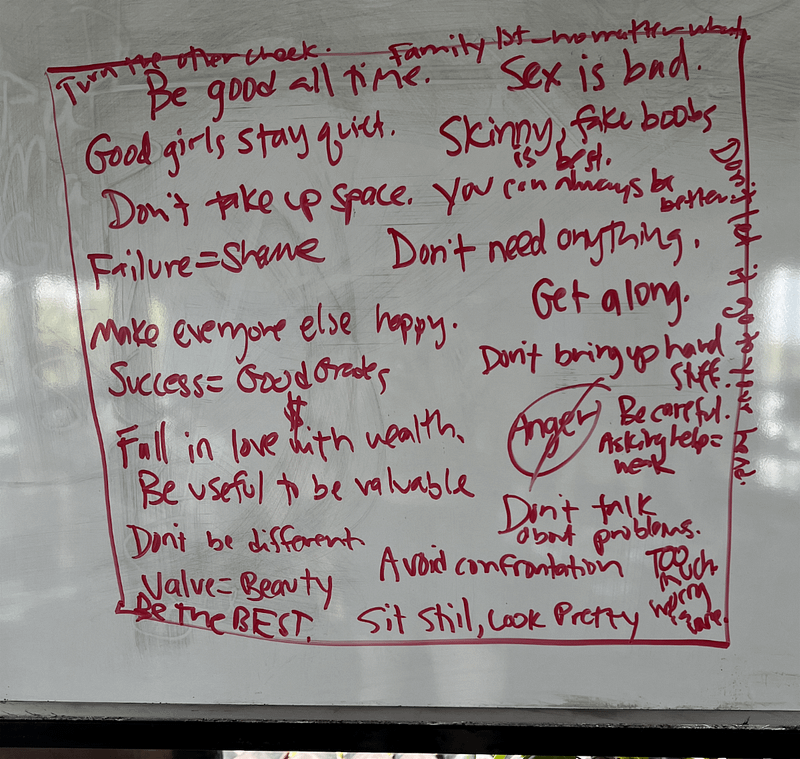 Turn the other cheek. Family 1st - no matter what
Be good all time. Sex is bad.
Good girls stay quiet. Skinny, fake boobs
is best.
Don't take up space. You can always be
better.
Failure=Shame Don't need anything.
Get along.
Make everyone else happy.
Don't bring up hard
stuff.
Success= Good Grades
$
Fall in love with wealth.
Anger
Be careful.
Asking help=
weak
Be useful to be valuable
Don't talk
about problems.
Don't be different
Avoid confrontation
Too
much
Value=Beauty
Be the BEST. Sit still, Look Pretty
Don't let it go to your head.